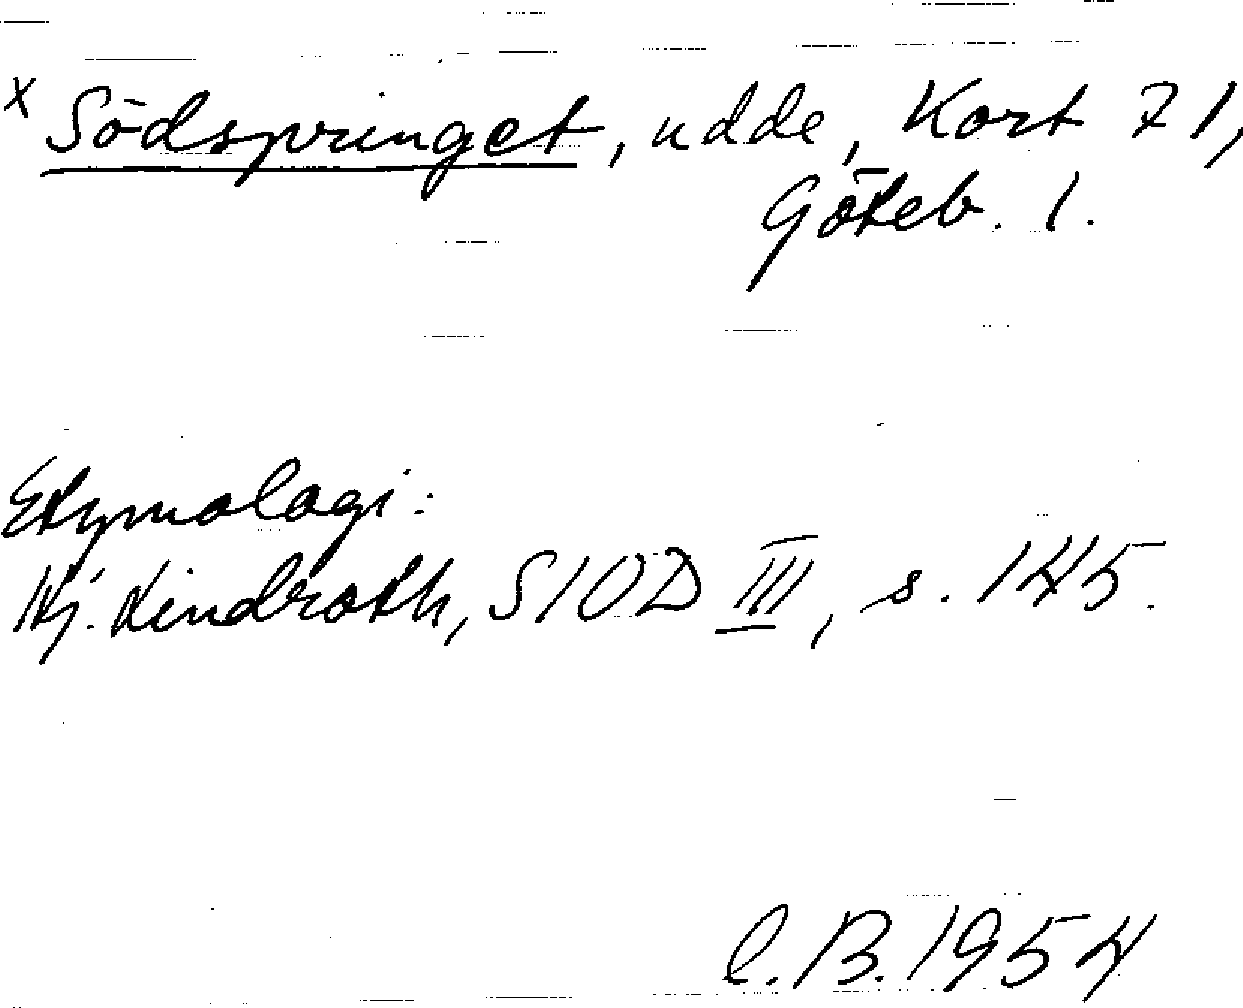 x Södspringet, udde, Kort 71,
Göteb. 1.
Etymologi:
Hj. Lindroth, SIOD III, s. 145.
C.B. 1954